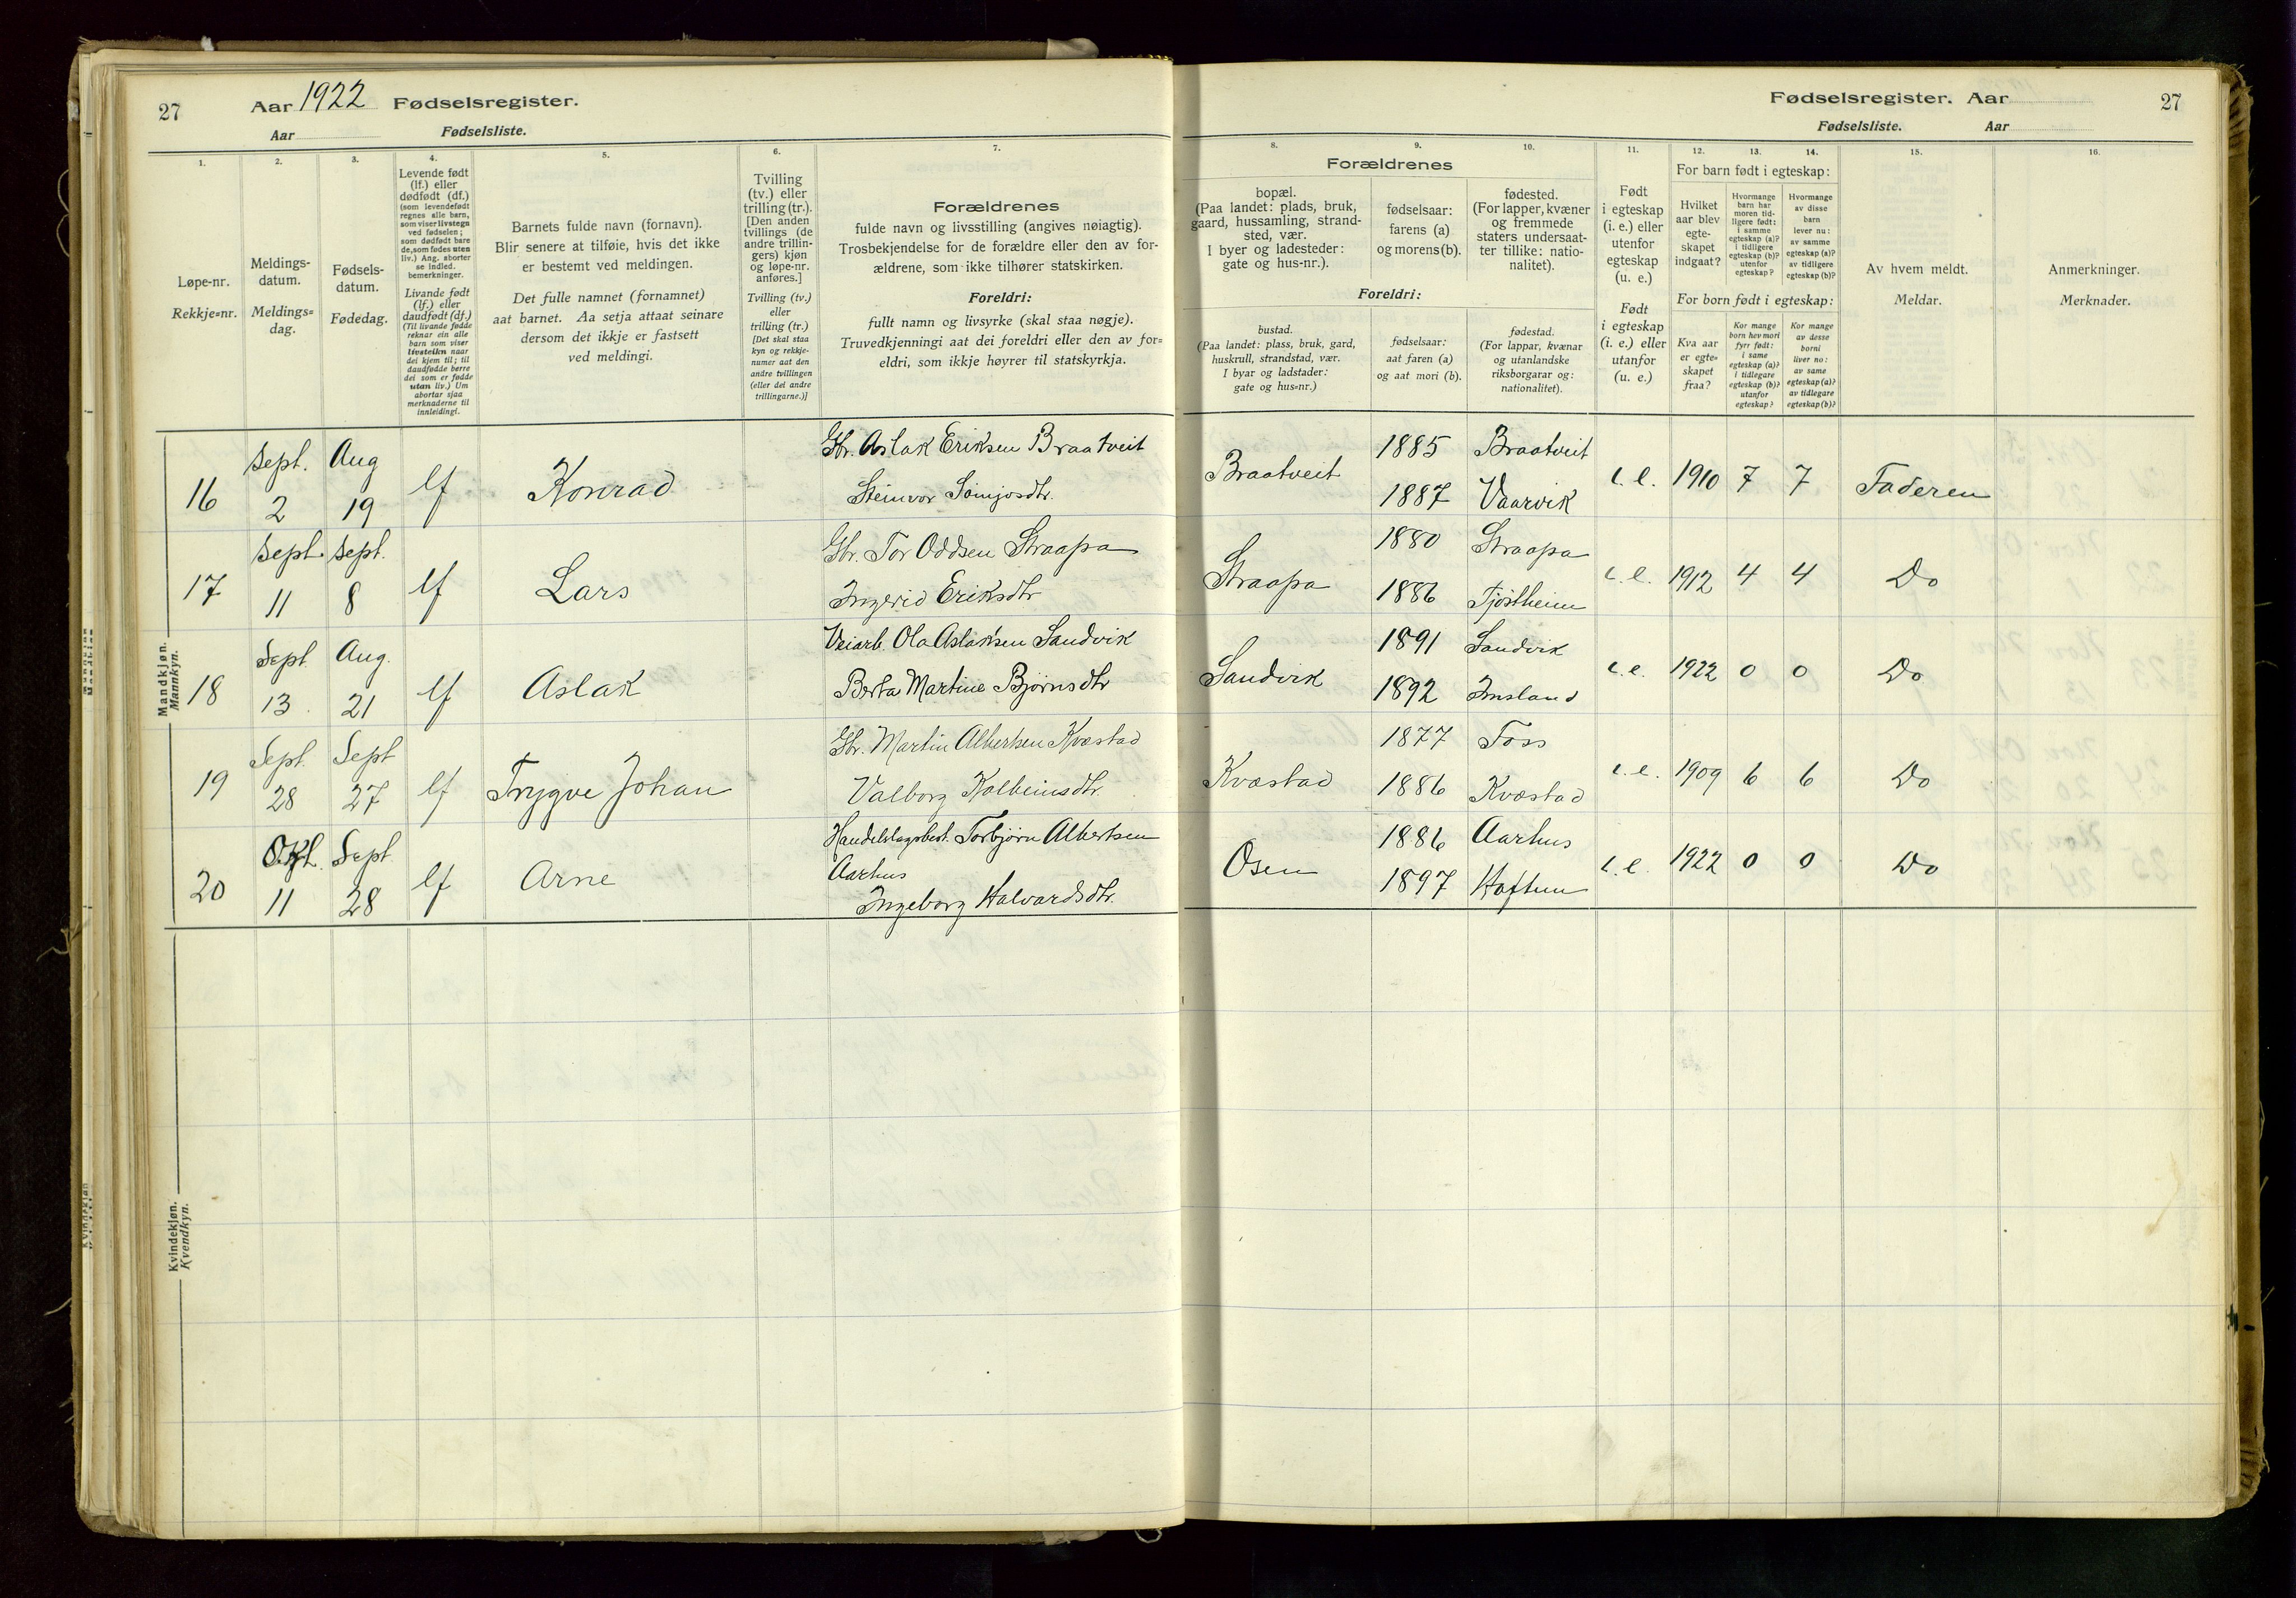 27
Aar 1922 Fødselsregister.
Aar
Fødselsliste.
1.
Løpe-nr.
Rekkje=nr.
2.
Meldings-
datum.
Meldings=
dag.
3.
Fødsels-
datum.
Fødedag.
4.
Levende født
(lf.) eller
dødfødt (df.)
(som levendefødt
regnes alle barn,
som viser livstegn
ved fødselen;
som dødfødt bare
de, som fødes uten
liv.) Ang. aborter
se indled.
bemerkninger.
Livande født
(lf.) eller
daudfødt (df.)
(Til livande fødde
reknar ein alle
barn som viser
livsteikn naar
dei kjem til; til
daudfødde berre
dei som er fødde
utan liv.) Um
abortar sjaa
merknaderne til
innleidingi.
5.
Barnets fulde navn (fornavn).
Blir senere at tilføie, hvis det ikke
er bestemt ved meldingen.
Det fulle namnet (fornamnet)
aat barnet. Aa setja attaat seinare
dersom det ikkje er fastsett
ved meldingi.
6.
Tvilling
(tv.) eller
trilling (tr.).
[Den anden
tvillings (de
andre trillin-
gers) kjøn
og løpe-nr.
anføres.]
Tvilling (tv.)
eller
trilling (tr.)
[Det skal staa
kyn og rekkje-
numer aat den
andre tvillingen
(eller dei andre
trillingarne.)]
7.
Forældrenes
fulde navn og livsstilling (angives nøiagtig).
Trosbekjendelse for de forældre eller den av for-
ældrene, som ikke tilhører statskirken.
Foreldri:
fullt namn og livsyrke (skal staa nøgje).
Truvedkjenningi aat dei foreldri eller den av for=
eldri, som ikkje høyrer til statskyrkja.
Mandkjøn.
Mannkyn.
16 Sept. 2 Aug 19 lf Konrad Gbr. Aslak Eriksen Braatveit
Steinvor Somjosdtr.
17 Sept. 11 Sept. 8 lf Lars Gbr. Tor Oddsen Straapa
Ingerid Eriksdtr
18 Sept. 13 Aug. 21 lf Aslak Veiarb. Ola Aslaksen Sandvik
Berta Martine Bjørnsdtr
19 Sept. 28 Sept 27 lf Trygve Johan Gbr. Martin Albertsen Kvæstad
Valborg Kolbeinsdtr.
20 Okt. 11 Sept 28 lf Arne Handelslagsbest. Torbjørn Albertsen
Aarhus
Ingeborg Halvardsdtr.
Kvindekjøn.
Kvendkyn.
Fødselsregister. Aar
27
Fødselsliste. Aar
8.
Forældrenes
bopæl.
(Paa landet: plads, bruk,
gaard, hussamling, strand-
sted, vær.
I byer og ladesteder:
gate og hus-nr.).
Foreldri:
bustad.
(Paa landet: plass, bruk, gard,
huskrull, strandstad, vær.
I byar og ladstader:
gate og hus=nr.)
9.
fødselsaar:
farens (a)
og morens (b).
fødselsaar:
aat faren (a)
og aat mori (b).
10.
fødested.
(For lapper, kvæner
og fremmede
staters undersaat-
ter tillike: natio-
nalitet).
fødestad.
(For lappar, kvænar
og utanlandske
riksborgarar og:
nationalitet).
11.
Født
i egteskap
(i. e.) eller
utenfor
egteskap
(u. e.)
Født
i egteskap
(i. e.) eller
utanfor
(u. e.)
For barn født i egteskap:
12.
Hvilket
aar blev
egte-
skapet
indgaat?
13.
Hvormange
barn har
moren tid-
ligere født:
i samme
egteskap (a)?
i tidligere
egteskap (b)?
utenfor
egteskap?
14.
Hvormange
av disse
barn
lever nu:
av samme
egteskap (a)?
av tidligere
egteskap (b)?
For born født i egteskap:
Kva aar
er egte=
skapet
fraa?
Kor mange
born hev mori
fyrr født:
i same
egteskap (a)?
i tidlegare
egteskap (b)?
utanfor
egteskap?
Kor mange
av desse
borni
liver no:
av same
egteskap (a)?
av tidlegare
egteskap (b)?
15.
Av hvem meldt.
Meldar.
16.
Anmerkninger.
Merknader.
Braatveit 1885 Braatveit
1887 Vaarvik i. e. 1910 7 7 Faderen
Straapa 1880 Straapa
1886 Tjøstheim i. e. 1912 4 4 Do
Sandvik 1891 Sandvik
1892 Imsland i. e. 1922 0 0 Do
Kvæstad 1877 Foss
1886 Kvæstad i. e. 1909 6 6 Do
Osen 1886 Aarhus
1897 Haftun i. e. 1922 0 0 Do